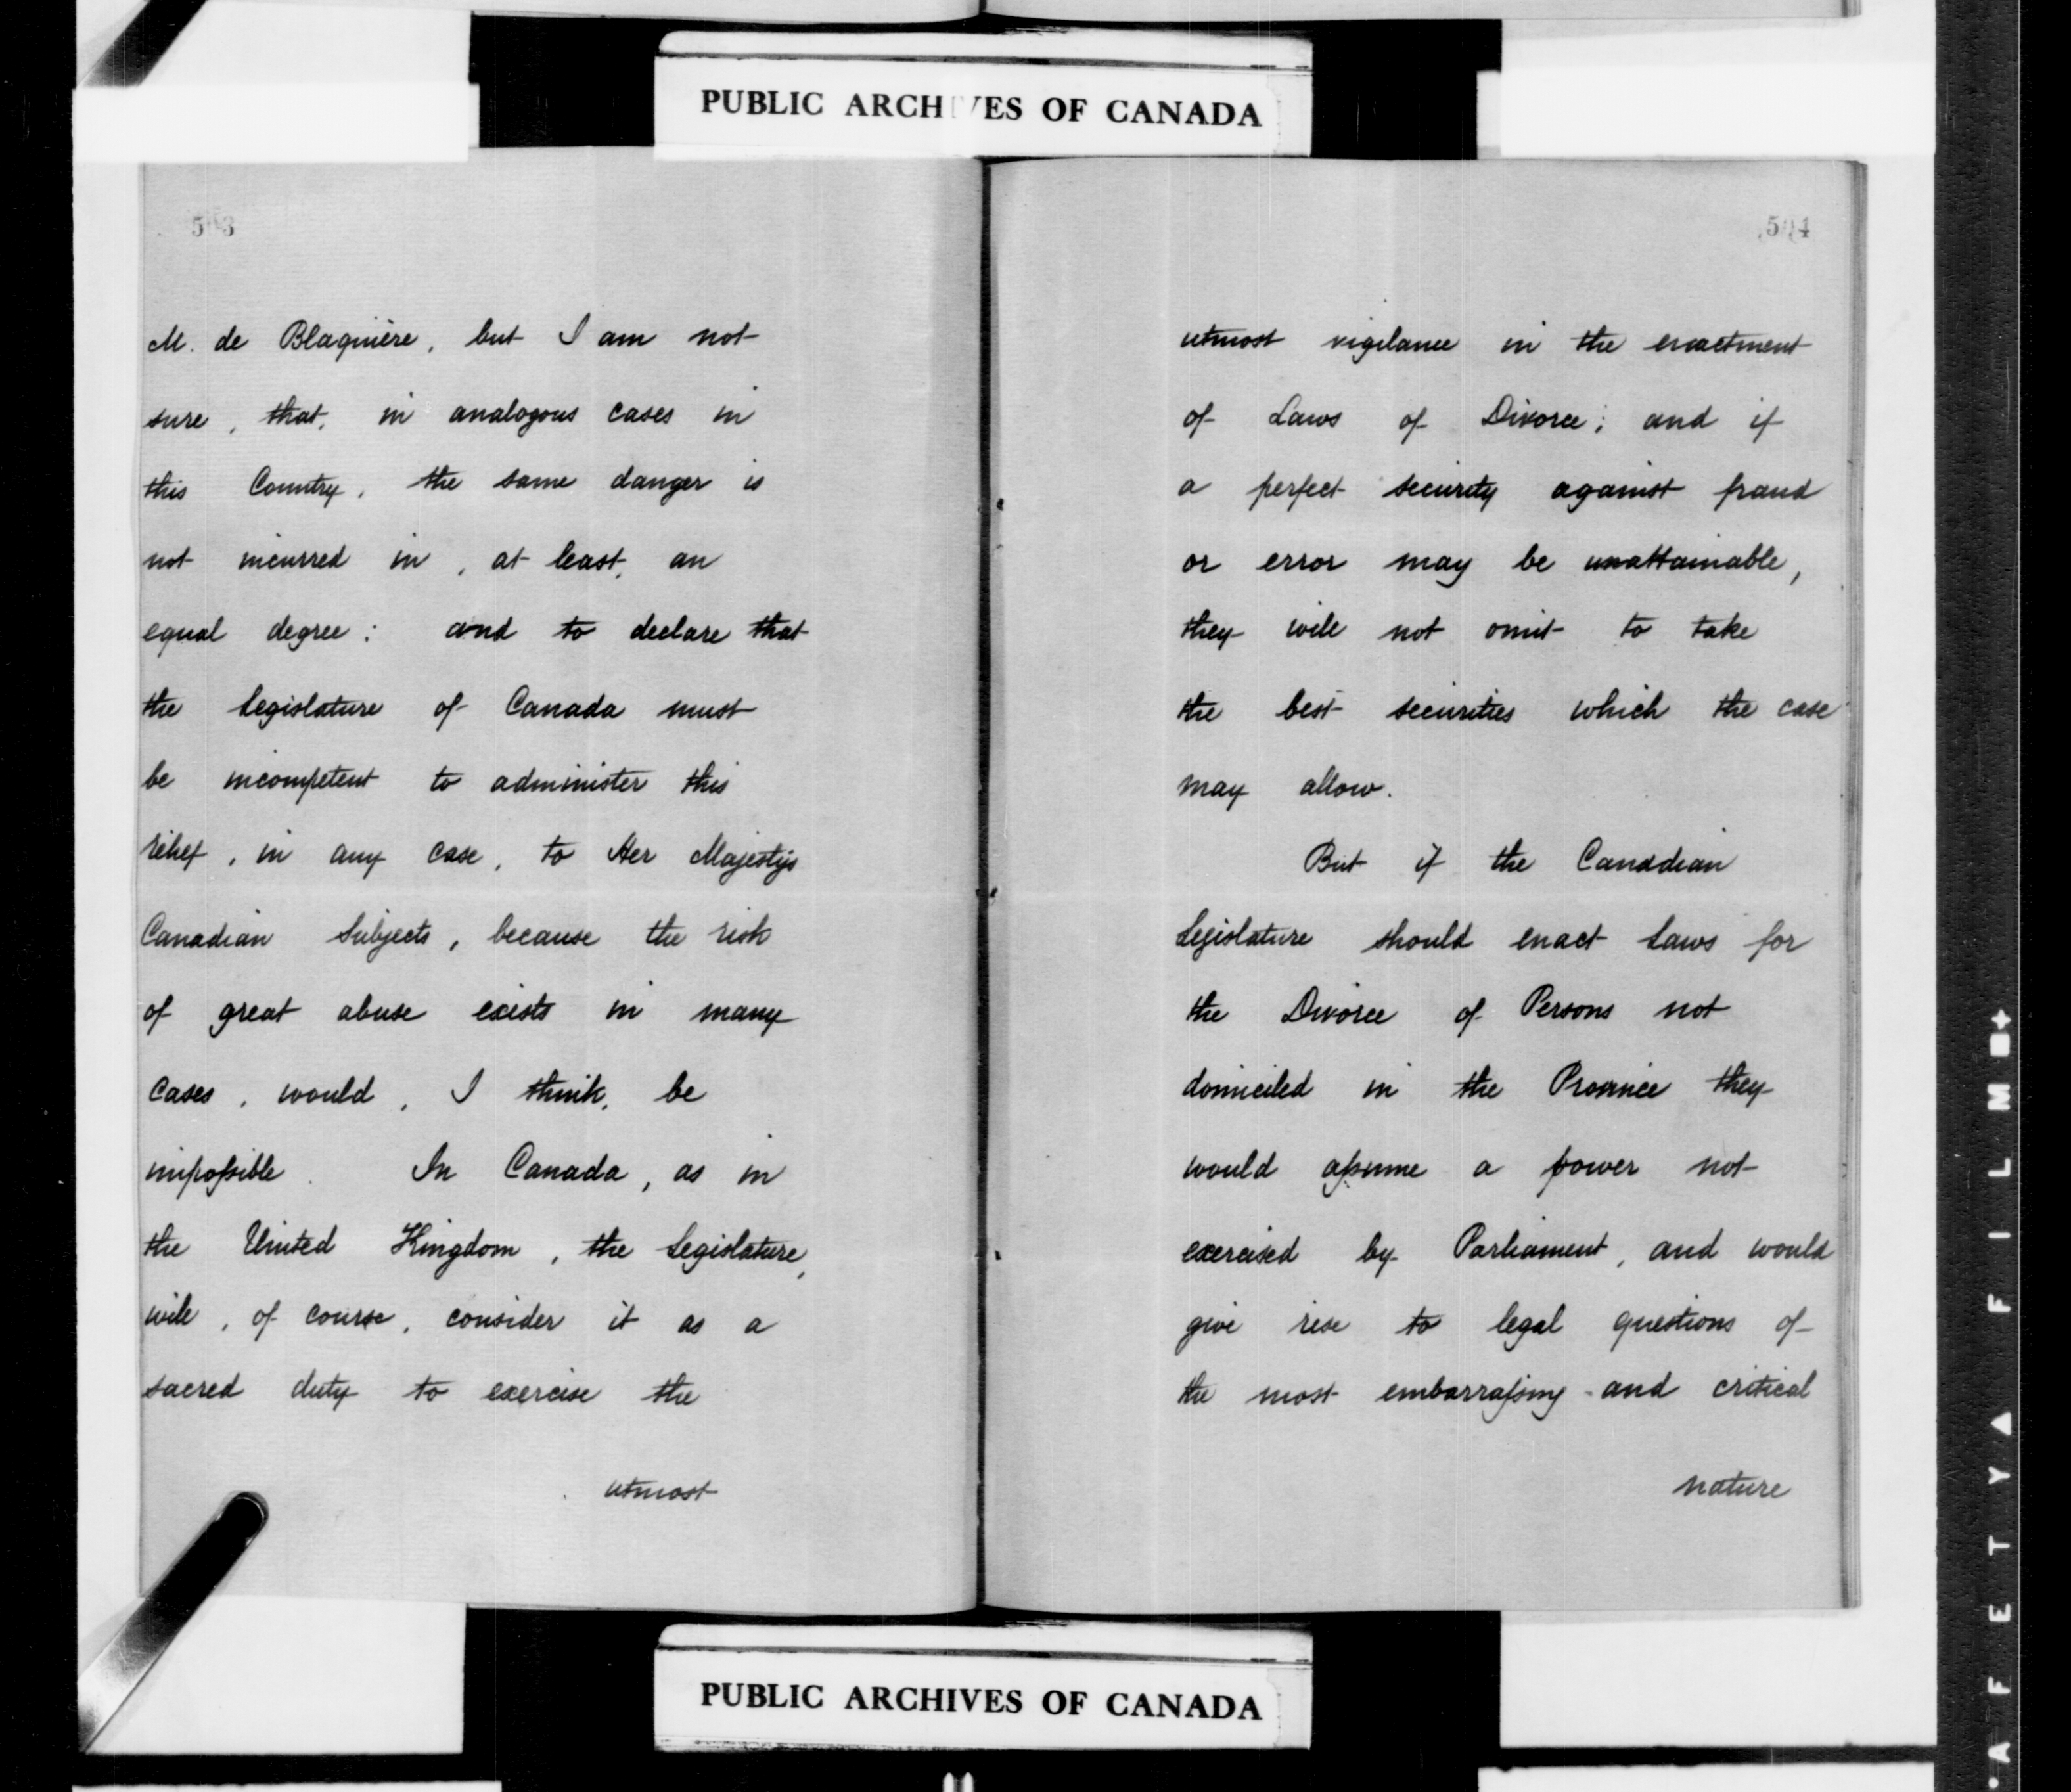 PUBLIC ARCHIVES OF CANADA
M. de Blaquière, but I am not
sure, that, in analogous cases in
this Country, the same danger is
not incurred in, at least, an
equal degree: and to declare that
the Legislature of Canada must
be incompetent to administer this
relief, in any case, to Her Majestys
Canadian Subjects, because the risk
of great abuse exists in many
cases, would, I think, be
impossible. In Canada, as in
the United Kingdom, the Legislature,
will, of course, consider it as a
sacred duty to exercise the
utmost
utmost vigilance in the enactment
of Laws of Divorce; and if
a perfect security against fraud
or error may be unattainable,
they will not omit to take
the best securities which the case
may allow.
But if the Canadian
Legislature should enact Laws for
the Divorce of Persons not
domiciled in the Province they
would assume a power not
exercised by Parliament, and would
give rise to legal questions of
the most embarrassing and critical
nature
PUBLIC ARCHIVES OF CANADA
SAFETY FILM